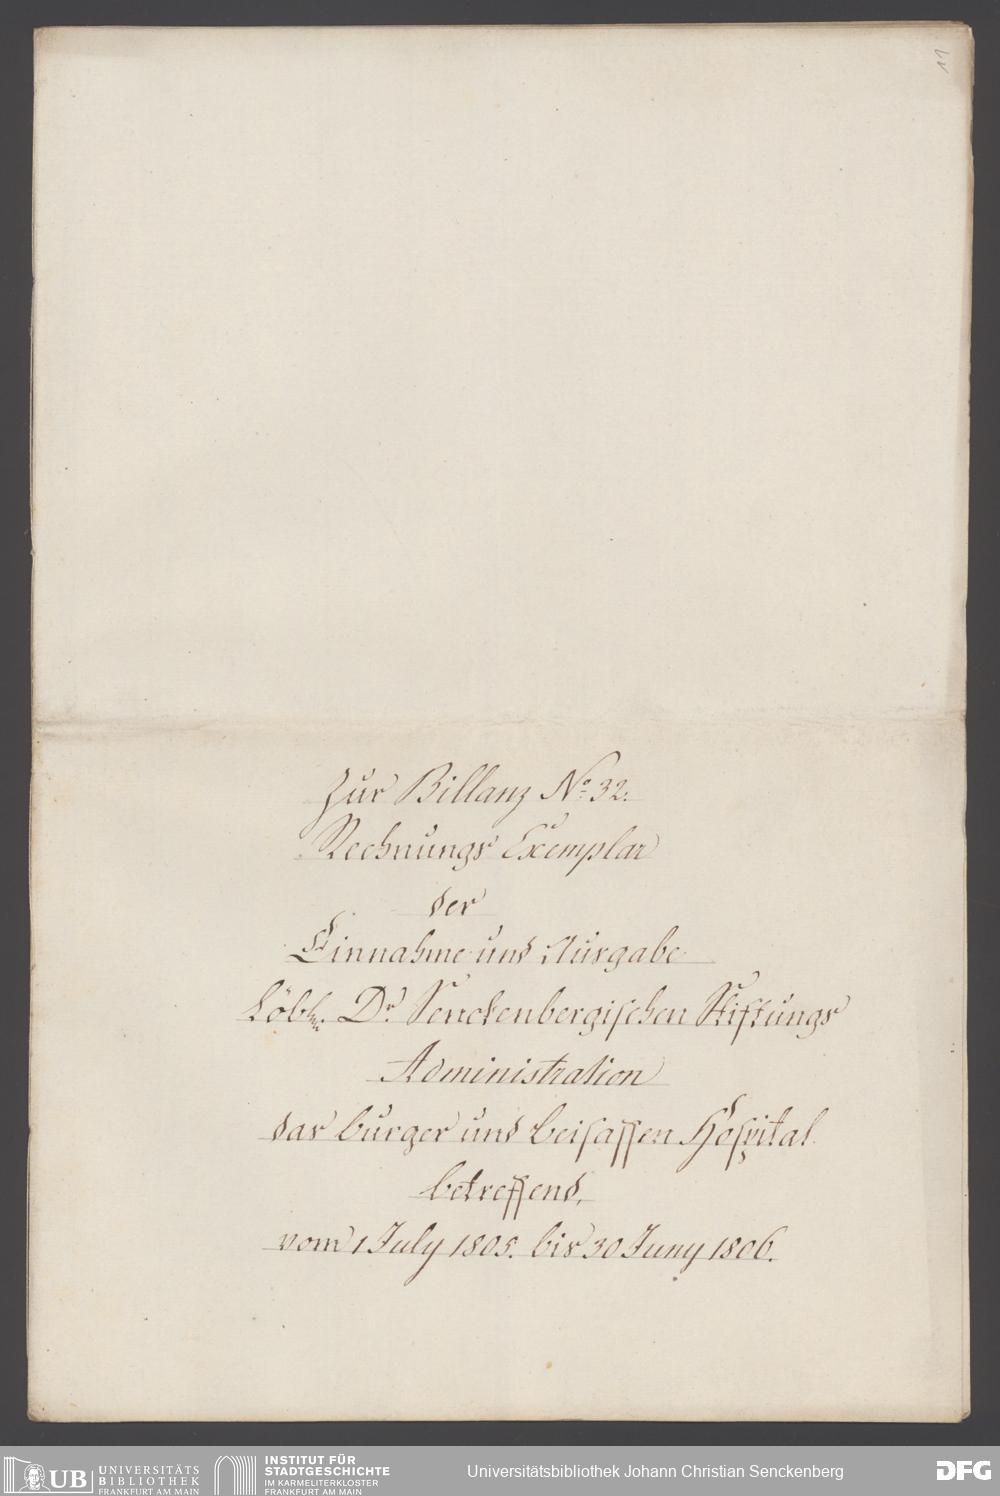 11
Zur Billanz No. 32.
Rechnungs Exemplar
der
Einnahme und Ausgabe
Löbln. Dr. Senckenbergischen Stiftungs
Administration
das burger und beisassen Hospital
betreffend,
vom 1 July 1805. bis 30 Juny 1806.
UB UNIVERSITÄTS
BIBLIOTHEK
FRANKFURT AM MAIN
INSTITUT FÜR
STADTGESCHICHTE
IM KARMELITERKLOSTER
FRANKFURT AM MAIN
Universitätsbibliothek Johann Christian Senckenberg
DFG